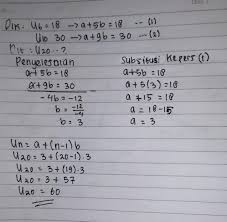 Dik. U6 = 18 → a+5b = 18 ... (1)
U10 30 → a+9b = 30 ... (2)
Dit = U20 ..?
Penyelesaian
a+5b = 18
a+9b = 30
-4b = -12
b = -12/-4
b = 3
Substitusi Kepers (1)
a+5b = 18
a+5(3) = 18
a+15 = 18
a = 18-15
a = 3
Un = a+(n-1)b
U20 = 3+(20-1).3
U20 = 3+(19).3
U20 = 3+57
U20 = 60